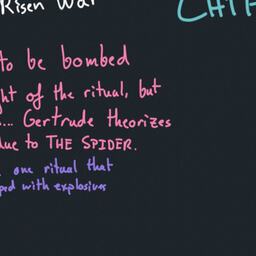 Risen War
CHIP
to be bombed
ht of the ritual, but
... Gertrude theorizes
due to THE SPIDER.
one ritual that
ped with explosives